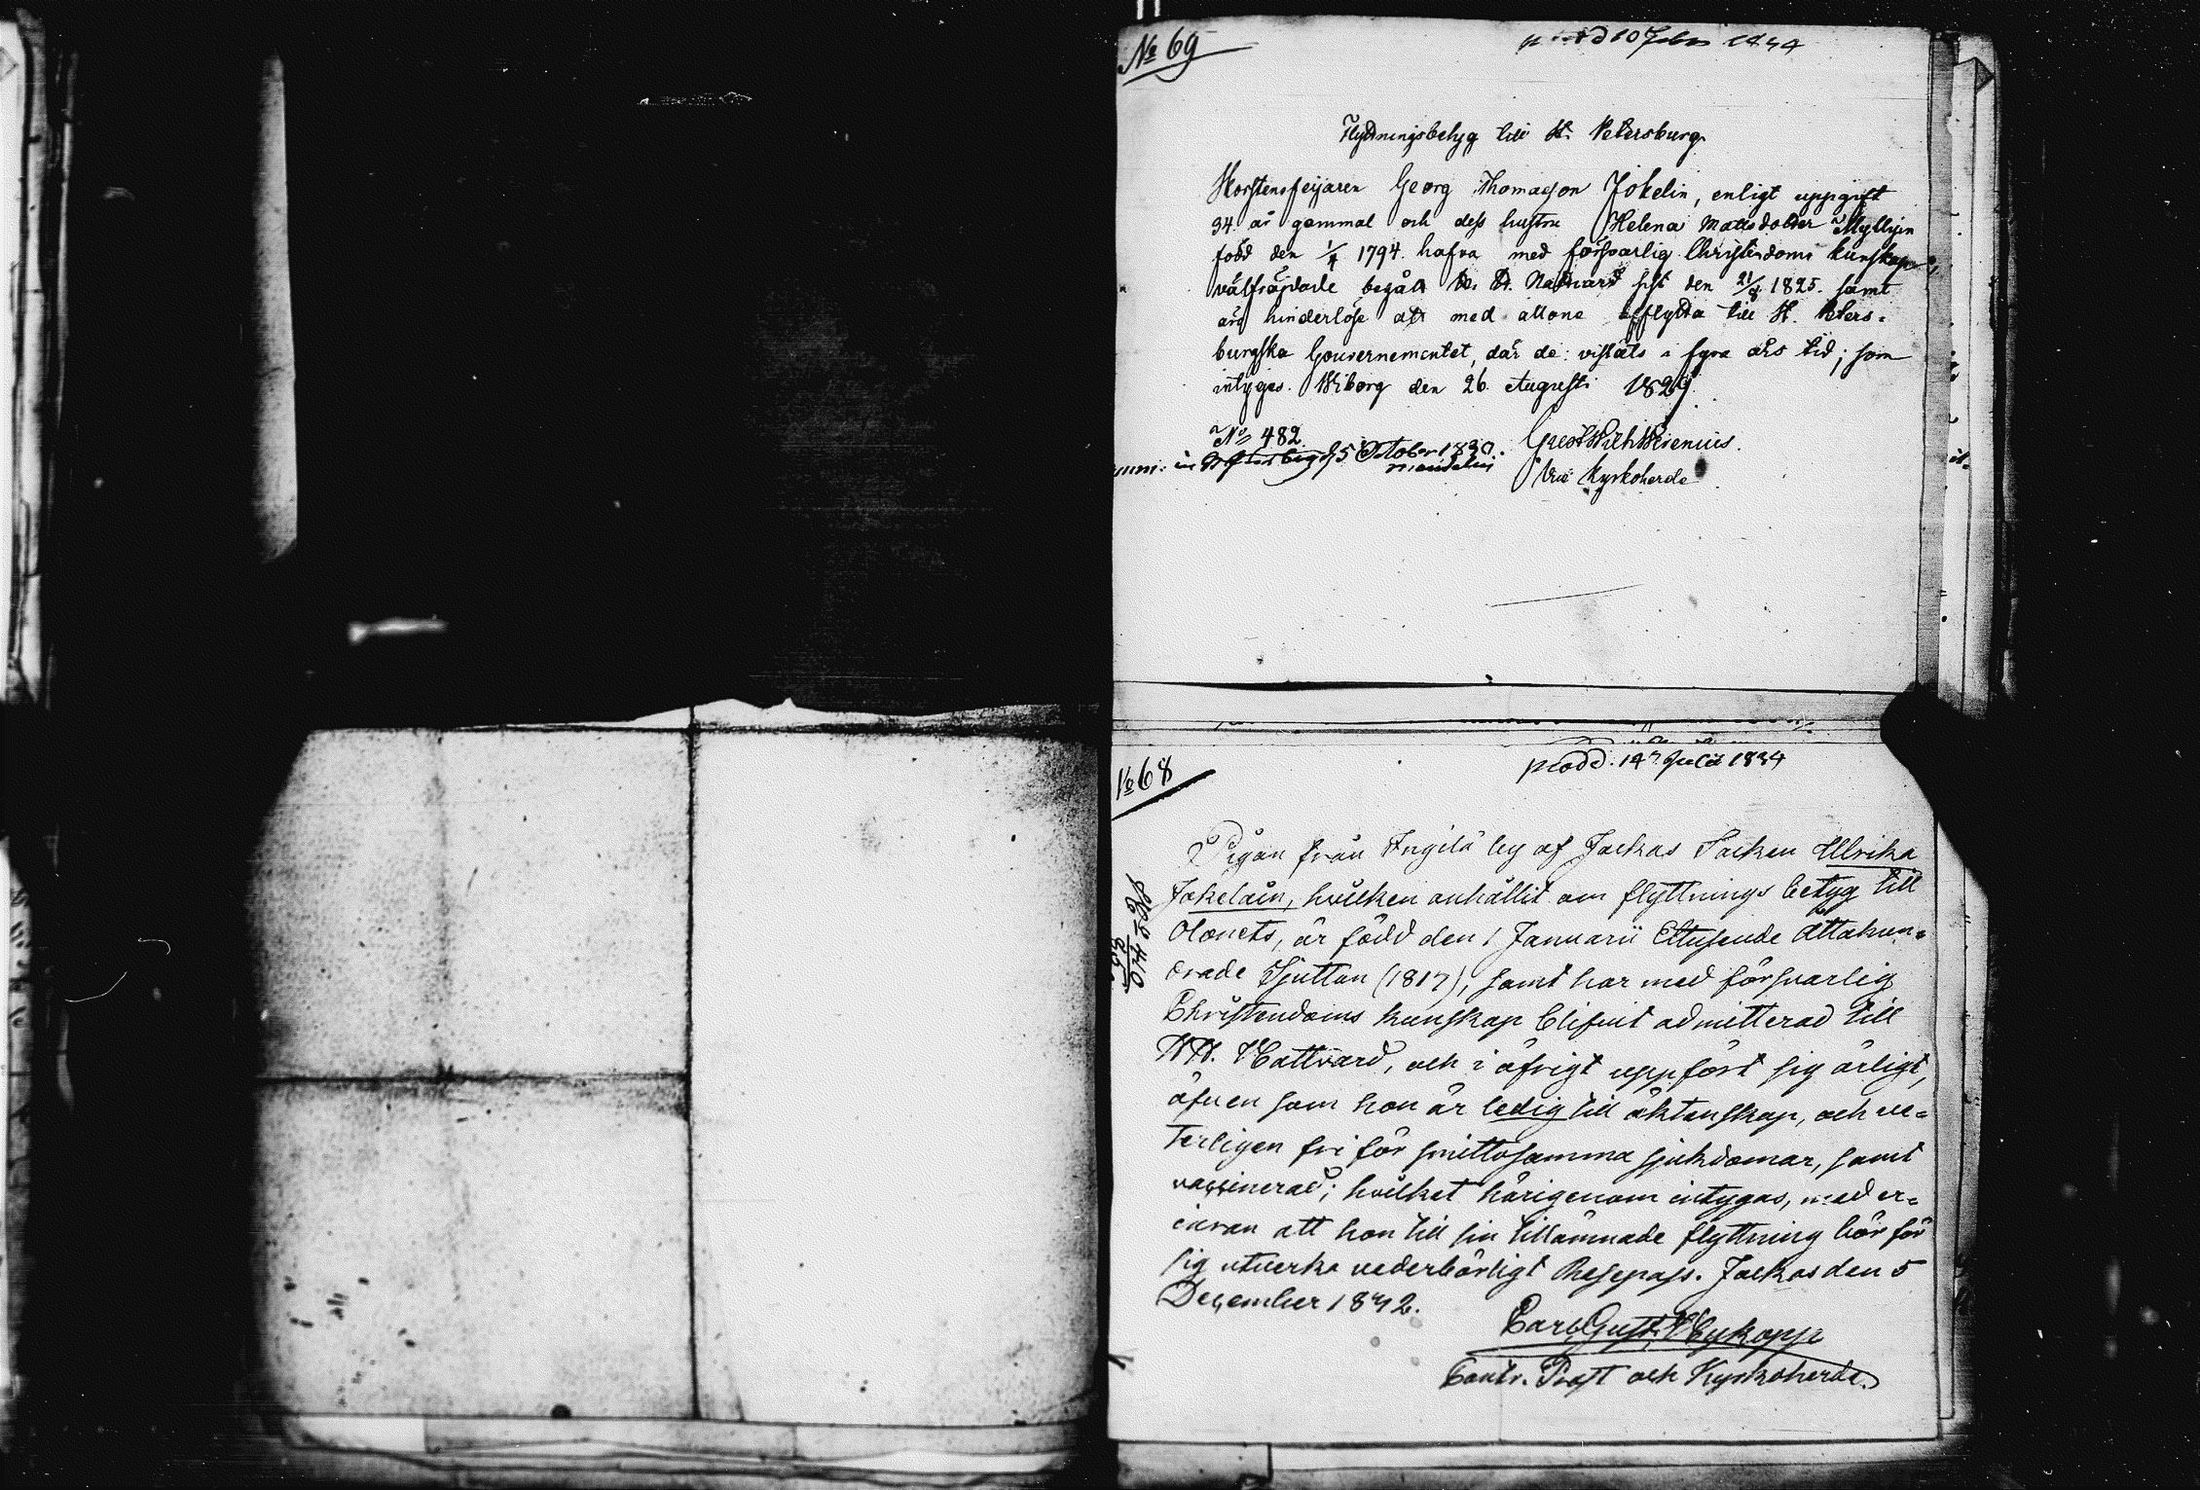 № 69
d 10 Febr 1834
Flyttningsbetyg till St. Petersburg.
Skorstensfejaren Georg Thomasson Jokelin, enligt uppgift
34 år gammal och dess hustru Helena Mattsdotter Myllyin
född den 1/4 1794. hafva med försvarlig Christendoms kunskap
välfräjdade begått H. H. Nattvard sist den 21/8 1825. samt
äro hinderlöse att med attone afflytta till St. Peters-
burgska Gouvernementet, där de vistats i fyra års tid; som
intygas. Wiborg den 26 Augusti 1829.
No 482.
5 October 1830.
Wilh
Vice Kyrkoherde
№ 68
prodd. 14 Julii 1834
Pigan från by af Jackas Socken Ullrika
Jokelain, hvilken anhållit om flyttnings betyg till
Olonets, är född den 1 Januarii Ettusende Åttahun-
drade Sjuttan (1817), samt har med försvarlig
Christendoms kunskap blifvit admitterad till
H. H. Nattvard, och i öfrigt uppfört sig ärligt,
äfven som hon är ledig till äktenskap, och ve-
terligen fri för smittosamma sjukdomar, samt
vaccinerad; hvilket härigenom intygas, med er-
inran att hon till sin tillämnade flyttning bör för
sig utverka vederbörligt Resepass. Jockas den 5
December 1832.
Carl Gust. Wykopp
Contr. Prost och Kyrkoherde.